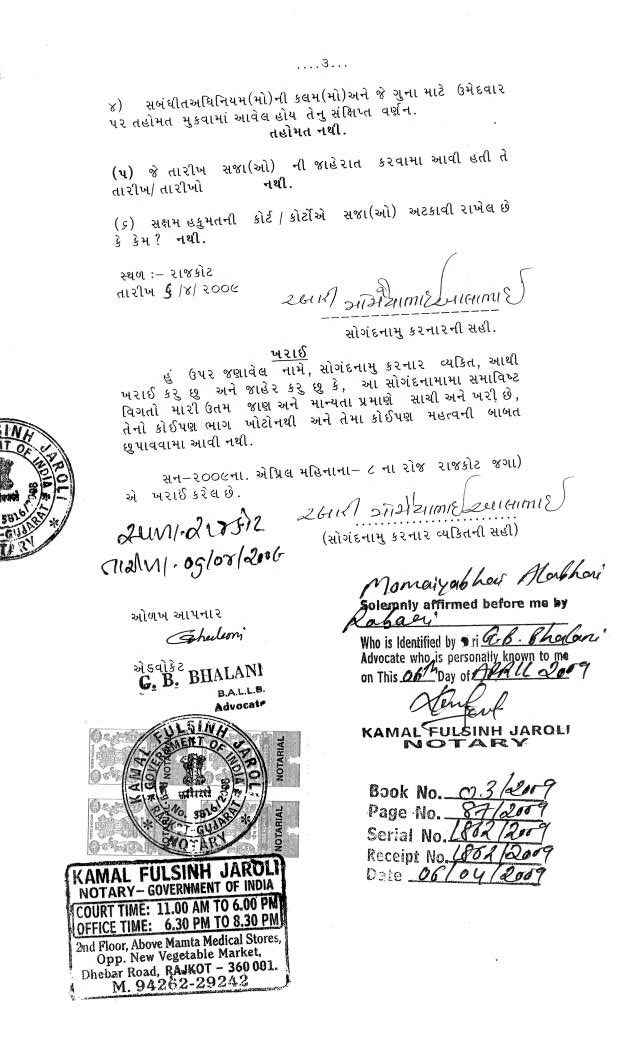 ....૩...
૪) સબંધીતઅધિનિયમ(મો)ની કલમ(મો)અને જે ગુના માટે ઉમેદવાર
પર તહોમત મુકવામાં આવેલ હોય તેનુ સંક્ષિપ્ત વર્ણન.
તહોમત નથી.
(૫) જે તારીખ સજા(ઓ) ની જાહેરાત કરવામા આવી હતી તે
તારીખ/તારીખો નથી.
(૬) સક્ષમ હકુમતની કોર્ટ/કોર્ટોએ સજા(ઓ) અટકાવી રાખેલ છે
કે કેમ? નથી.
સ્થળ :- રાજકોટ
તારીખ ૬/૪/૨૦૦૯
રબારી મોમૈયાભાઈ આલાભાઈ
સોગંદનામુ કરનારની સહી.
ખરાઈ
હું ઉપર જણાવેલ નામે, સોગંદનામુ કરનાર વ્યકિત, આથી
ખરાઈ કરુ છુ અને જાહેર કરુ છુ કે, આ સોગંદનામામા સમાવિષ્ટ
વિગતો મારી ઉતમ જાણ અને માન્યતા પ્રમાણે સાચી અને ખરી છે,
તેનો કોઈપણ ભાગ ખોટોનથી અને તેમા કોઈપણ મહત્વની બાબત
છુપાવવામા આવી નથી.
સન-૨૦૦૯ના. એપ્રિલ મહિનાના- ૮ ના રોજ રાજકોટ જગા)
એ ખરાઈ કરેલ છે.
રબારી મોમૈયાભાઈ આલાભાઈ
(સોગંદનામુ કરનાર વ્યકિતની સહી)
સ્થળ. રાજકોટ
તારીખ. ૦૬/૦૪/૨૦૦૯
Momaiyabhai Alabhai
Solemnly affirmed before me by
Rabari
Who is Identified by Sri G.B. Bhalani
Advocate who is personally known to me
on This 06th Day of APRIL 2009
KAMAL FULSINH JAROLI
NOTARY
ઓળખ આપનાર
એડવોકેટ
G. B. BHALANI
B.A.LL.B.
Advocate
KAMAL FULSINH JAROLI
GOVERNMENT OF INDIA
No. 3816/2008
RAJKOT-GUJARAT
NOTARY
NOTARIAL
NOTARIAL
Book No. 03/2009
Page No. 87/2009
Serial No. 1802/2009
Receipt No. 1802/2009
Date 06/04/2009
KAMAL FULSINH JAROLI
NOTARY–GOVERNMENT OF INDIA
COURT TIME: 11.00 AM TO 6.00 PM
OFFICE TIME: 6.30 PM TO 8.30 PM
2nd Floor, Above Mamta Medical Stores,
Opp. New Vegetable Market,
Dhebar Road, RAJKOT - 360 001.
M. 94262-29242